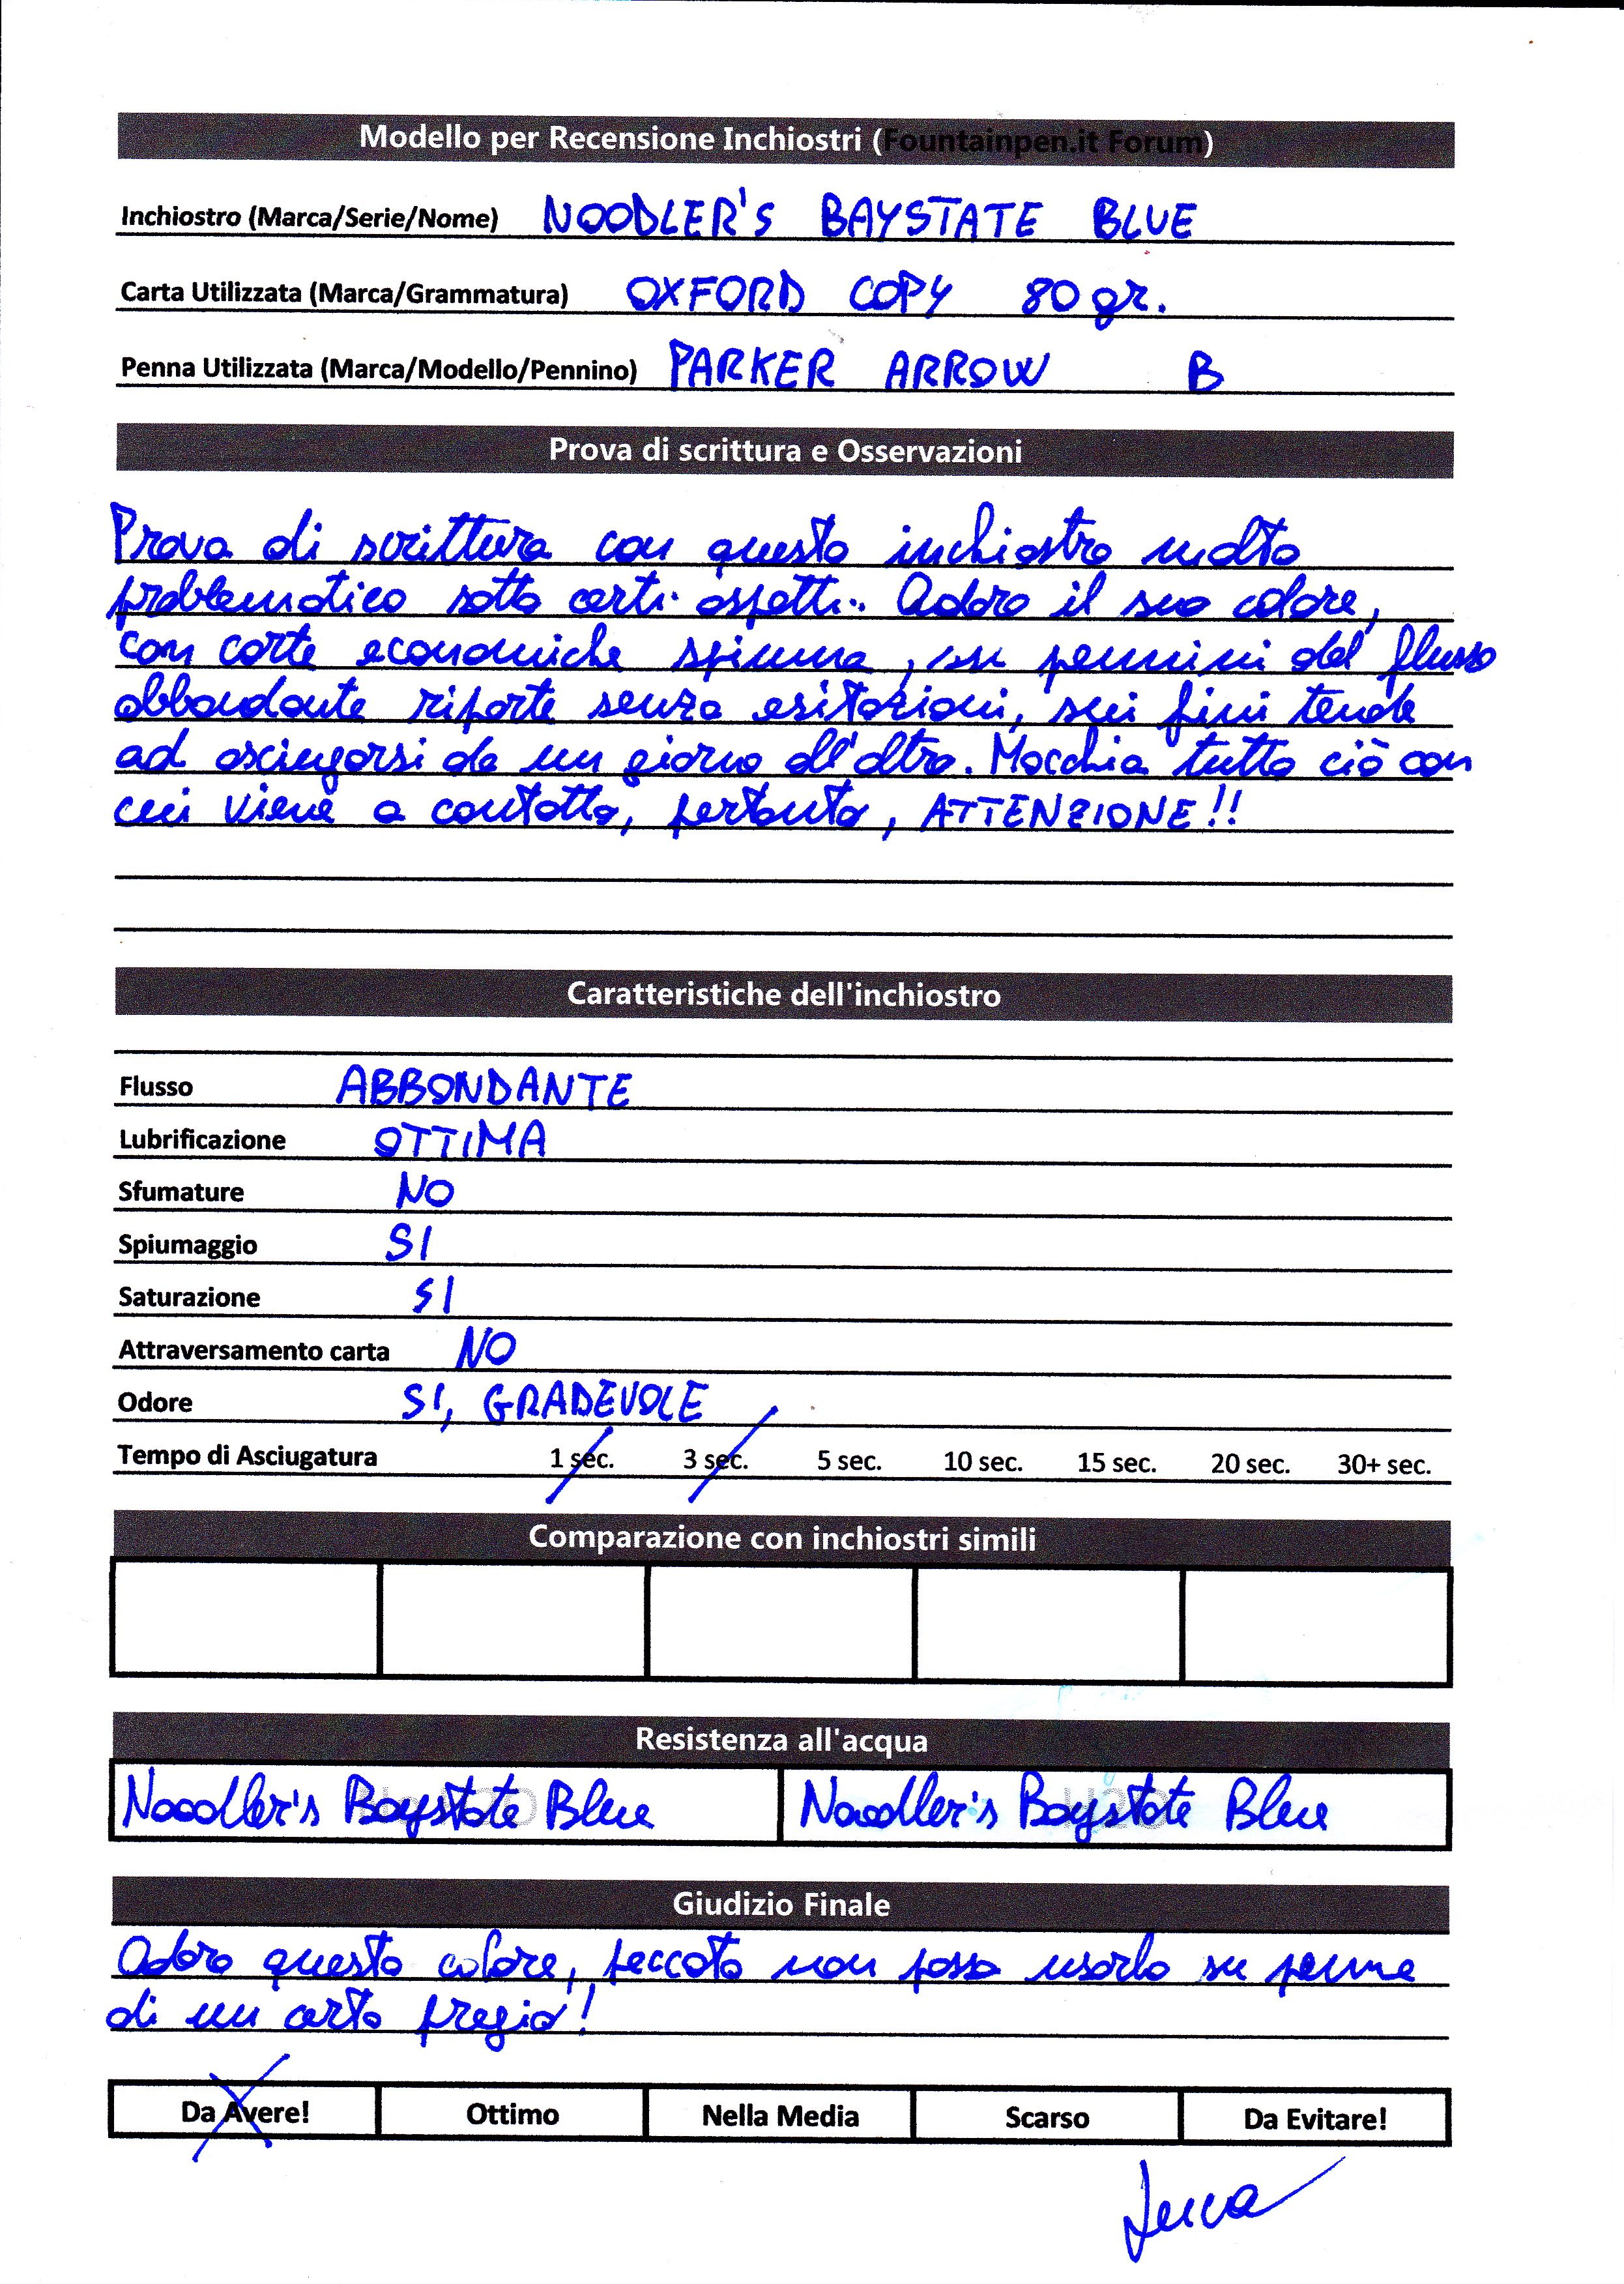 Modello per Recensione Inchiostri (Fountainpen.it Forum)
Inchiostro (Marca/Serie/Nome) NOODLER'S BAYSTATE BLUE
Carta Utilizzata (Marca/Grammatura) OXFORD COPY 80 gr.
Penna Utilizzata (Marca/Modello/Pennino) PARKER ARROW B
Prova di scrittura e Osservazioni
Prova di scrittura con questo inchiostro molto
problematico sotto certi aspetti. Adoro il suo colore,
con carte economiche spiuma, su pennini dal flusso
abbondante riparte senza esitazioni, sui fini tende
ad asciugarsi da un giorno all'altro. Macchia tutto ciò con
cui viene a contatto, pertanto, ATTENZIONE!!
Caratteristiche dell'inchiostro
Flusso ABBONDANTE
Lubrificazione OTTIMA
Sfumature NO
Spiumaggio SI
Saturazione SI
Attraversamento carta NO
Odore SI, GRADEVOLE
Tempo di Asciugatura 1 sec. 3 sec. 5 sec. 10 sec. 15 sec. 20 sec. 30+ sec.
Comparazione con inchiostri simili
Resistenza all'acqua
Noodler's Baystate Blue Noodler's Baystate Blue
Giudizio Finale
Adoro questo colore, peccato non possa usarlo su penne
di un certo pregio!
Da Avere! Ottimo Nella Media Scarso Da Evitare!
Luca